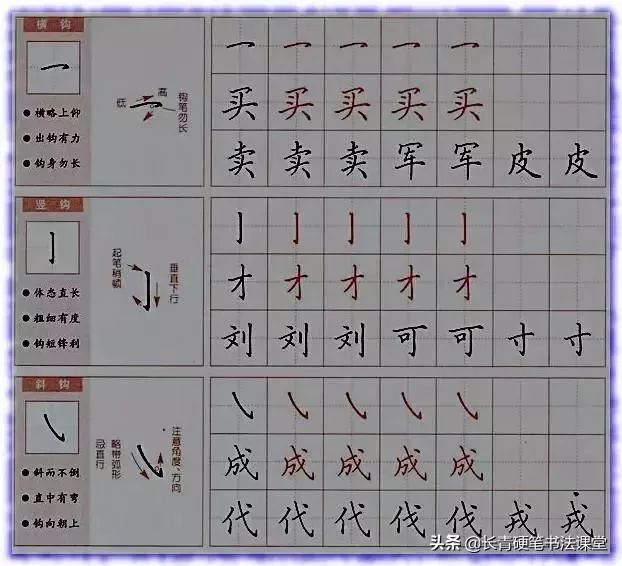 横钩
一
横略上仰
出钩有力
钩身勿长
低
高
钩笔勿长
买 买 买 买 买
卖 卖 卖 军 军 皮 皮
竖钩
亅
体态直长
粗细有度
钩短锋利
起笔稍顿
垂直下行
亅 亅 亅 亅 亅
才 才 才 才 才
刘 刘 刘 可 可 寸 寸
斜钩
斜而不倒
直中有弯
钩向朝上
忌直行
略带弧形
注意角度、方向
成 成 成 成 成
代 代 代 伐 伐 戎 戎
头条 @长青硬笔书法课堂